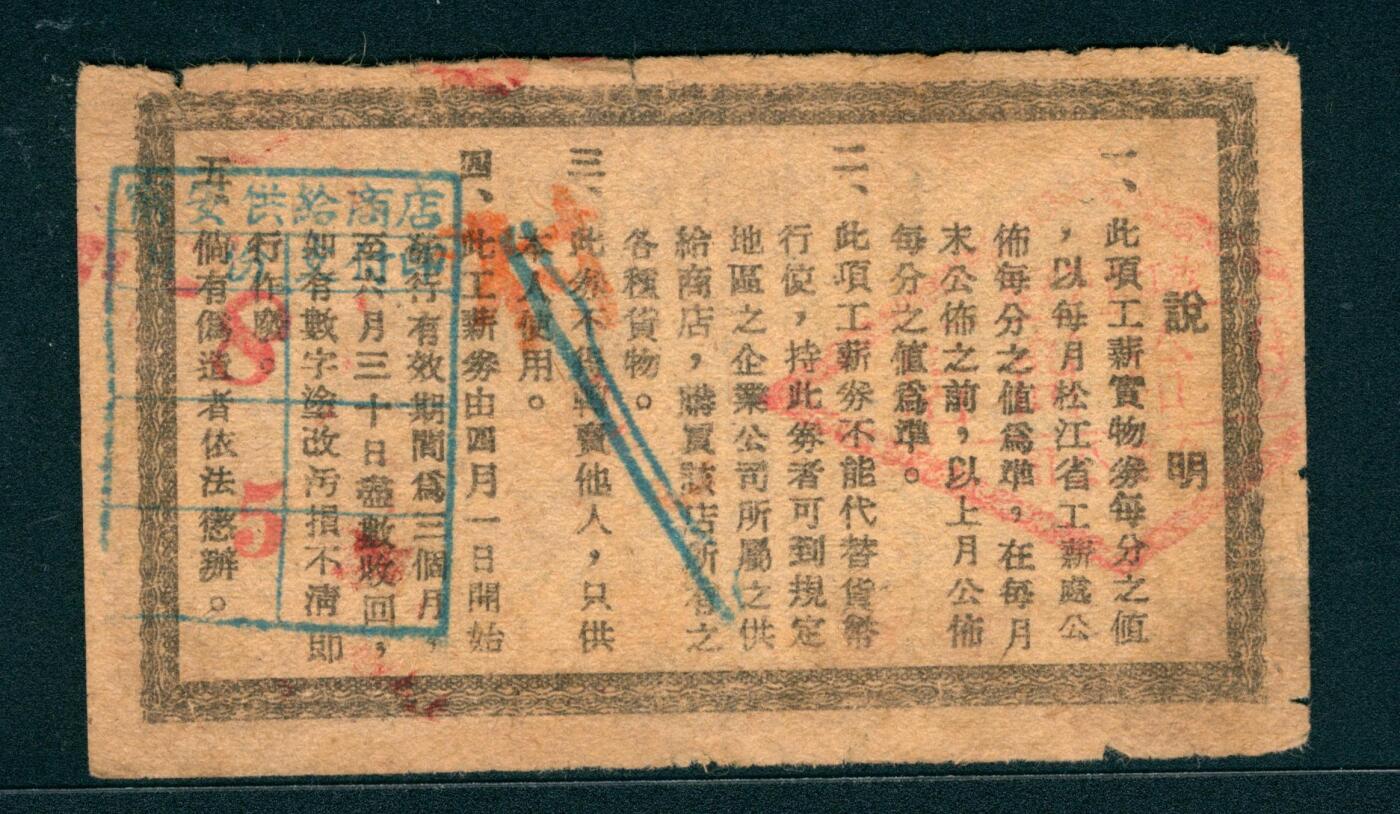 說明
一、此項工薪實物劵每分之值
，以每月松江省工薪處公
佈每分之值爲準，在每月
末公佈之前，以上月公佈
每分之值爲準。
二、此項工薪劵不能代替貨幣
行使，持此劵者可到規定
地區之企業公司所屬之供
給商店，購買該店所有之
各種貨物。
三、此劵不得轉賣他人，只供
本人使用。
四、此工薪劵由四月一日開始
發行有效期間爲三個月，
至六月三十日盡數收回，
如有數字塗改汚損不清即
行作廢。
五、倘有僞造者依法懲辦。
安供給商店
8
5